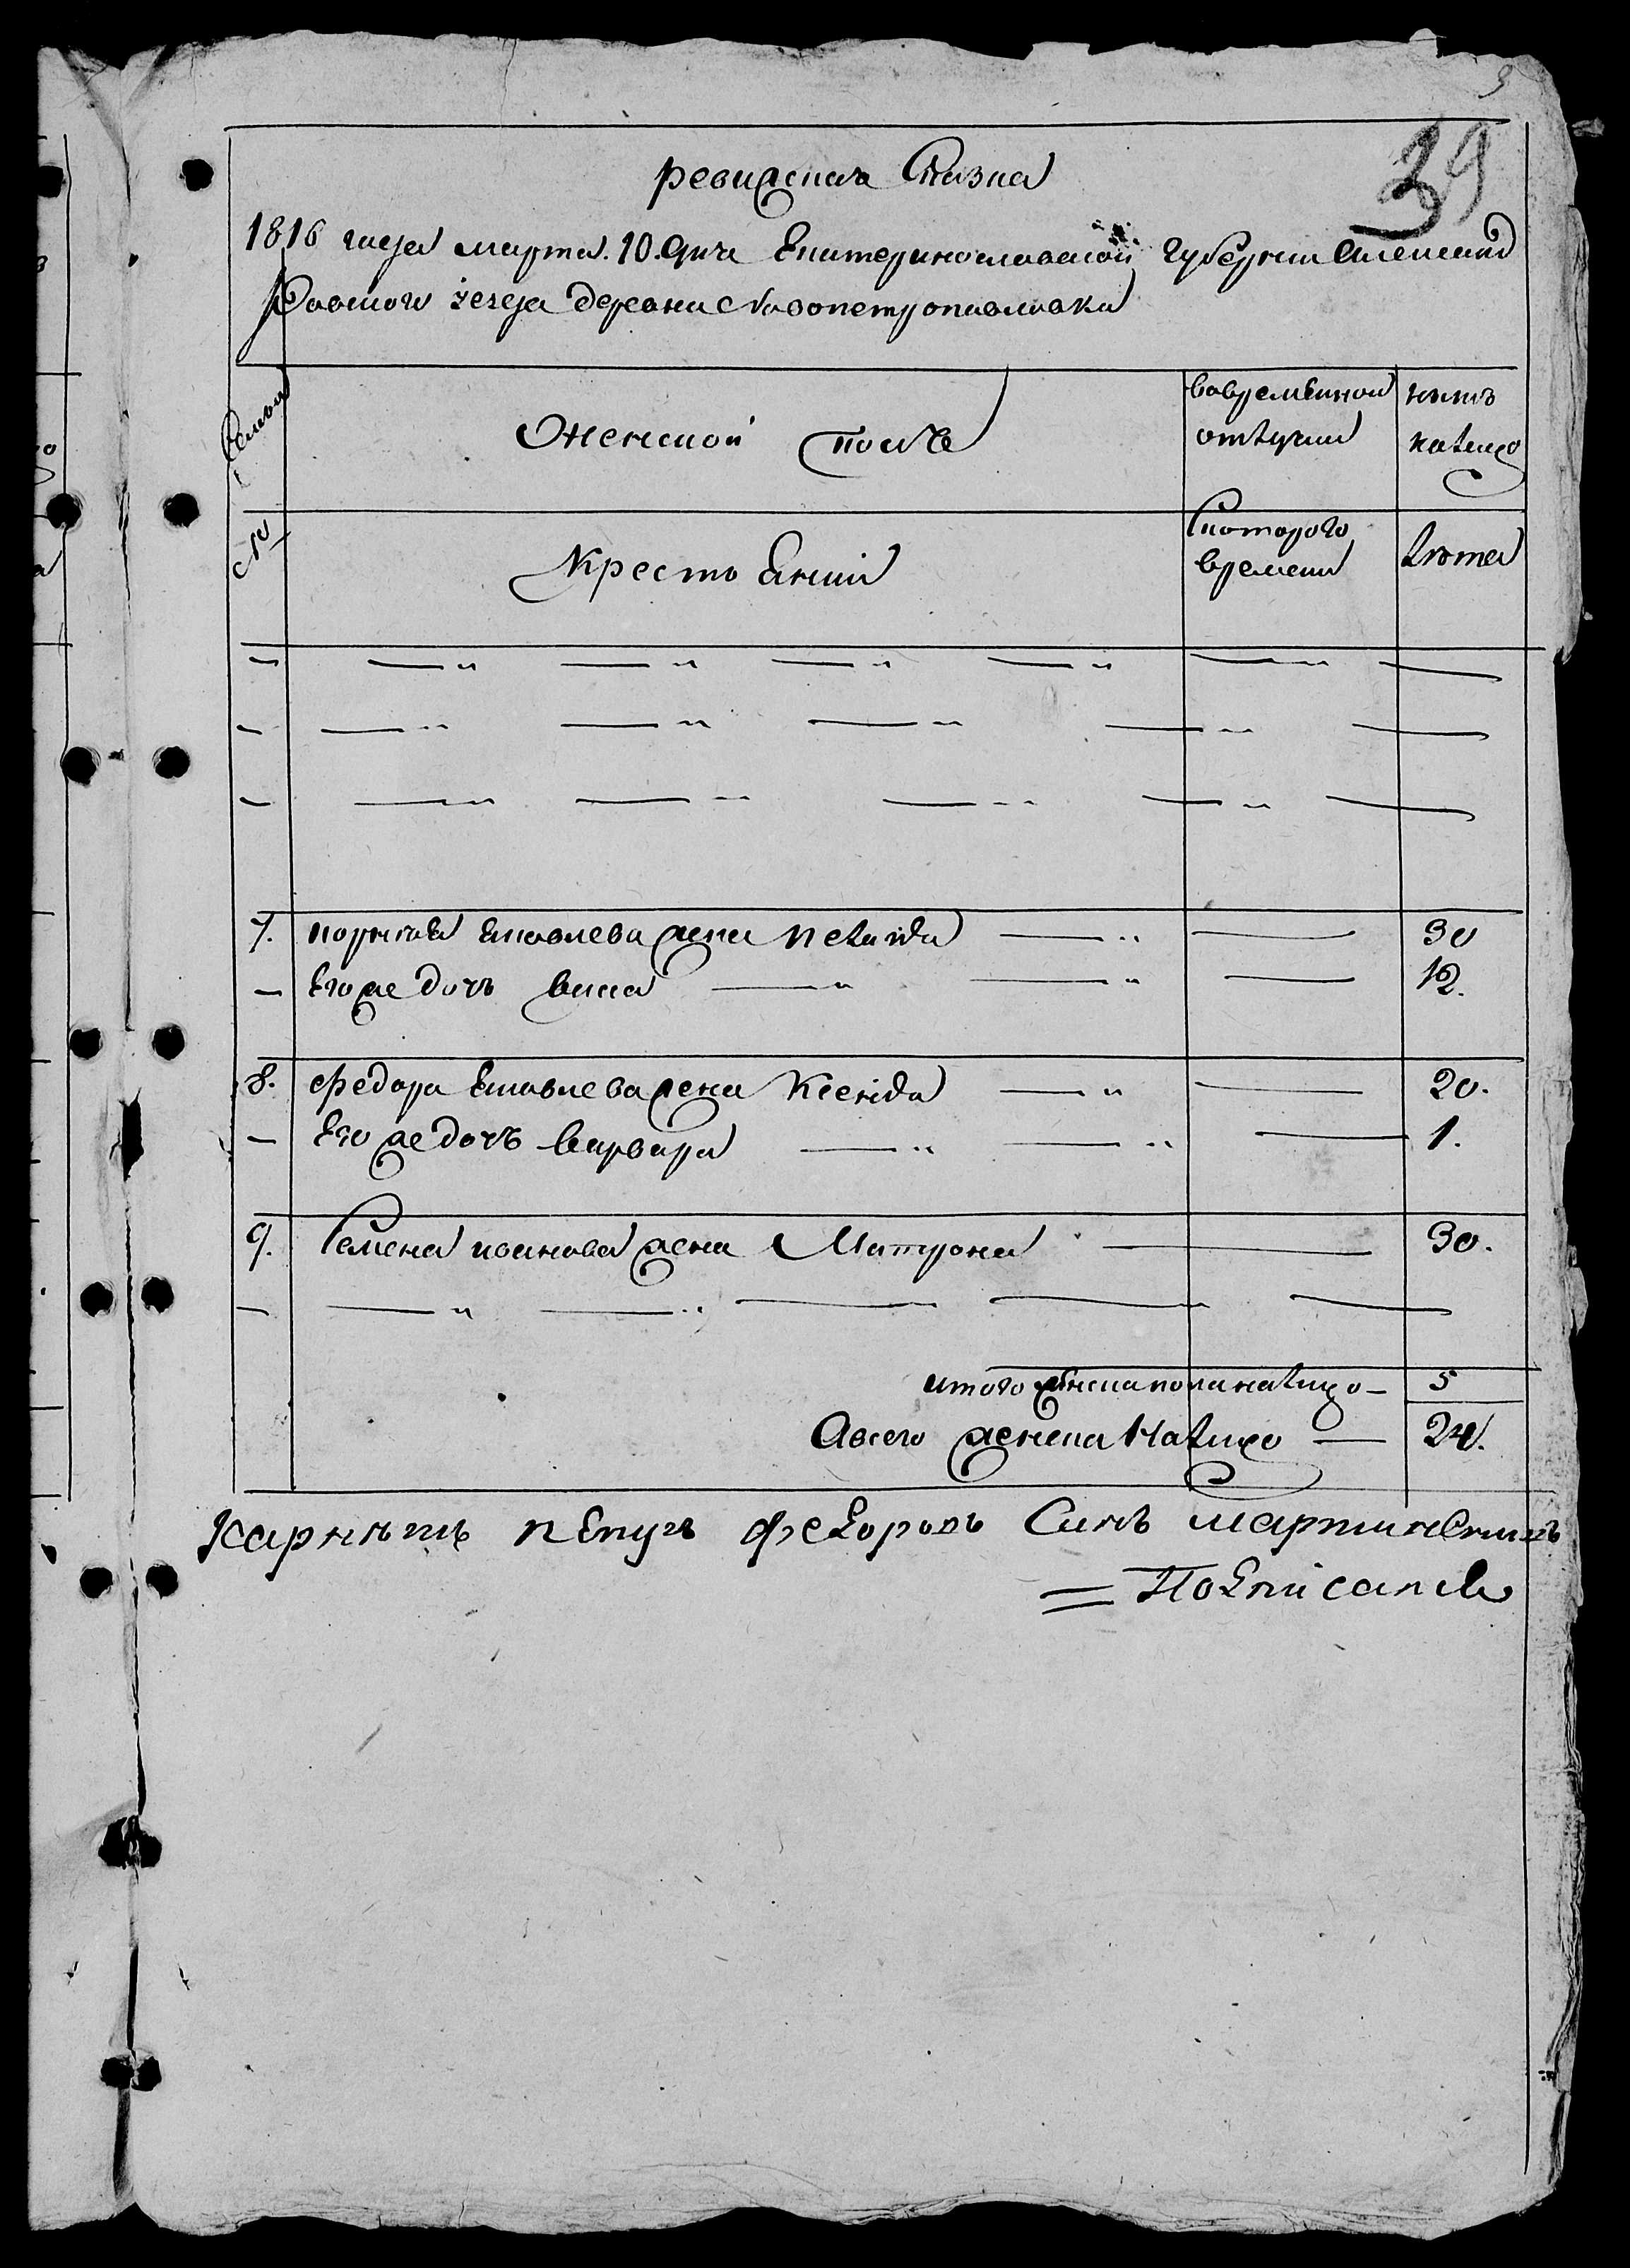 39
ревиская Сказка
1816 года марта. 10. дня Екатеринославской губернии Алексан
дровского уезда деревни Новопетропавловки
Семьи
Женской полъ
вовременной
отлучки
нынъ
налицо
№
Крестьянский
Скоторого
времени
лѣта
7. Яковлева жена 30
Его же дочь 12.
8. федора Яковлева жена Ксенія 20.
Его же дочъ варвара 1.
9. Семена иванова жена Матрона 30.
итого женска пола налицо 5
Авсего женска налицо 24.
Карнѣтъ федоровъ Синъ
Подписалъ